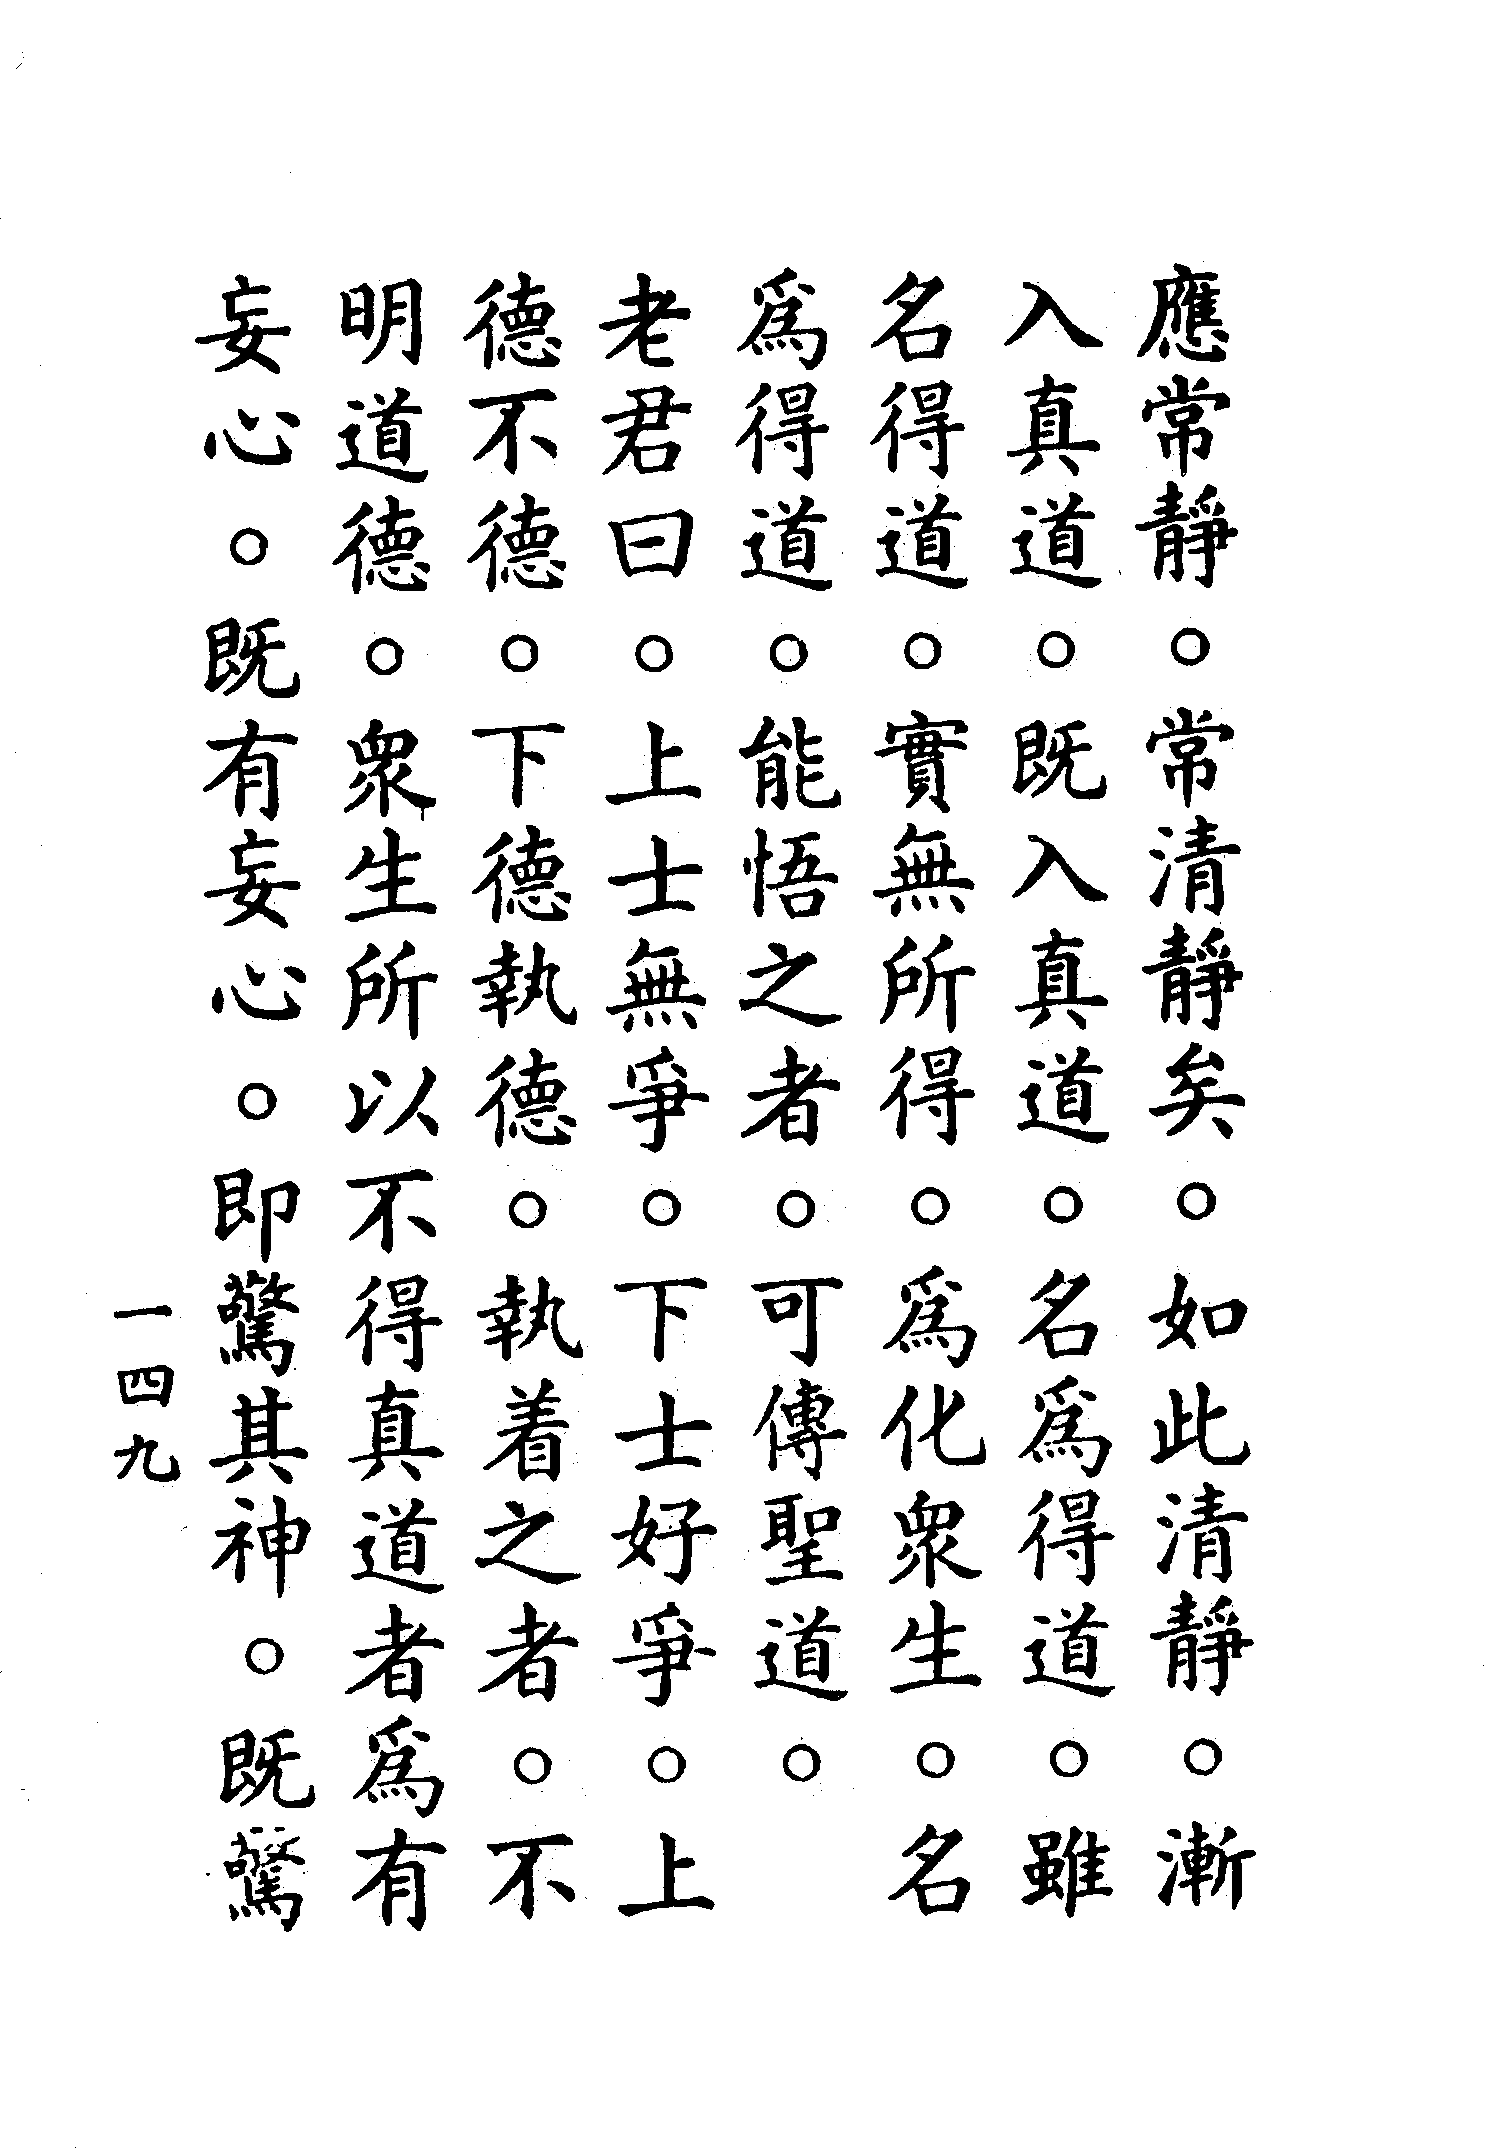 應常靜。常清靜矣。如此清靜。漸
入真道。既入真道。名爲得道。雖
名得道。實無所得。爲化衆生。名
爲得道。能悟之者。可傳聖道。
老君曰。上士無爭。下士好爭。上
德不德。下德執德。執着之者。不
明道德。衆生所以不得真道者爲有
妄心。既有妄心。即驚其神。既驚
一四九